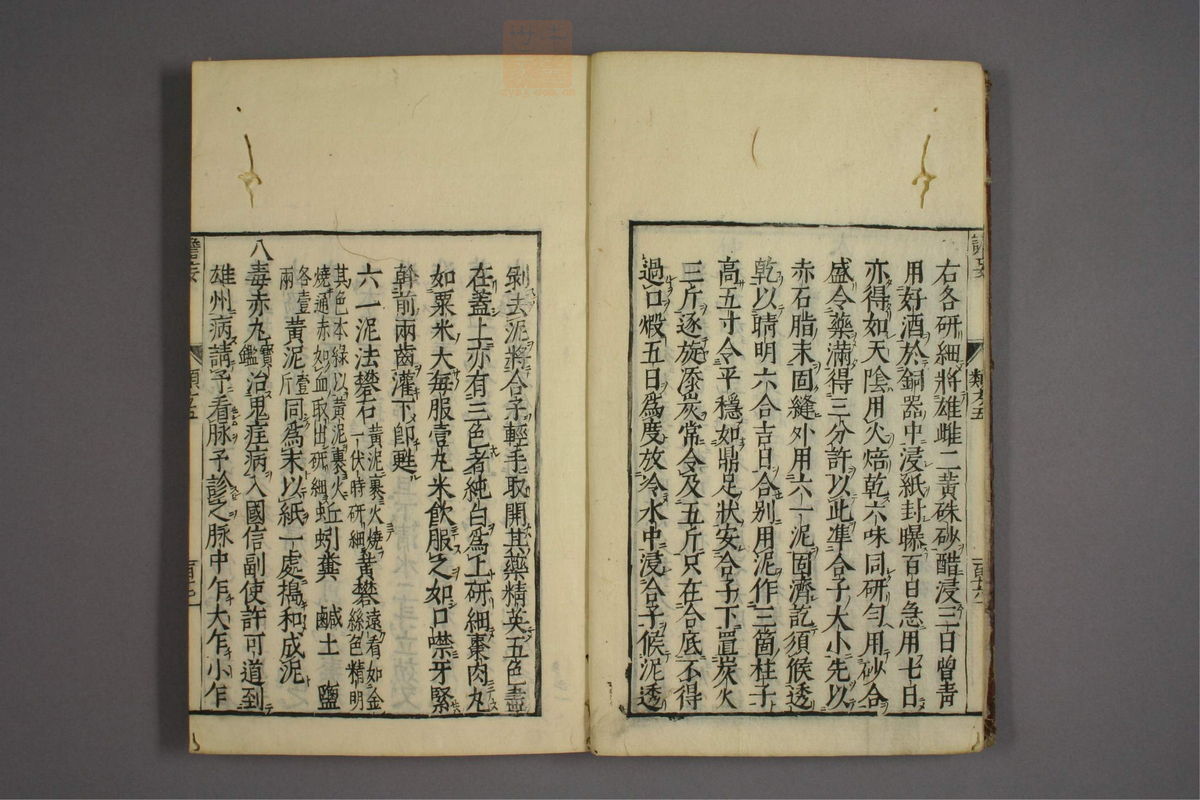 右各研細將雄雌二黃硃砂醋浸三日曾青
用好酒於銅器中浸紙封曝百日急用七日
亦得如天陰用火焙乾六味同研勻用砂合
盛令藥滿得三分許以此準合子大小先以
赤石脂末固縫外用六一泥固濟訖須候透
乾以晴明六合吉日合別用泥作三箇柱子
高五寸令平穩如鼎足狀安合子下置炭火
三斤逐旋添炭常令及五斤只在合底不得
過口煅五日爲度放冷水中浸合子候泥透
剝去泥將合子輕手取開其藥精英五色盡
在蓋上亦有三色者純白爲上研細棗肉丸
如粟米大每服壹丸米飮服之如口噤牙緊
斡前兩齒灌下卽甦
六一泥法礬石黃泥裹火燒一伏時研細黃礬遠看如金絲色精明
其色本綠以黃泥裹火燒通赤如血取出研細蚯蚓糞 鹹土 鹽
各壹兩黃泥壹斤同爲末以紙一處搗和成泥
八毒赤丸寶鑑治鬼疰病入國信副使許可道到
雄州病請予看脉予診之脉中乍大乍小乍